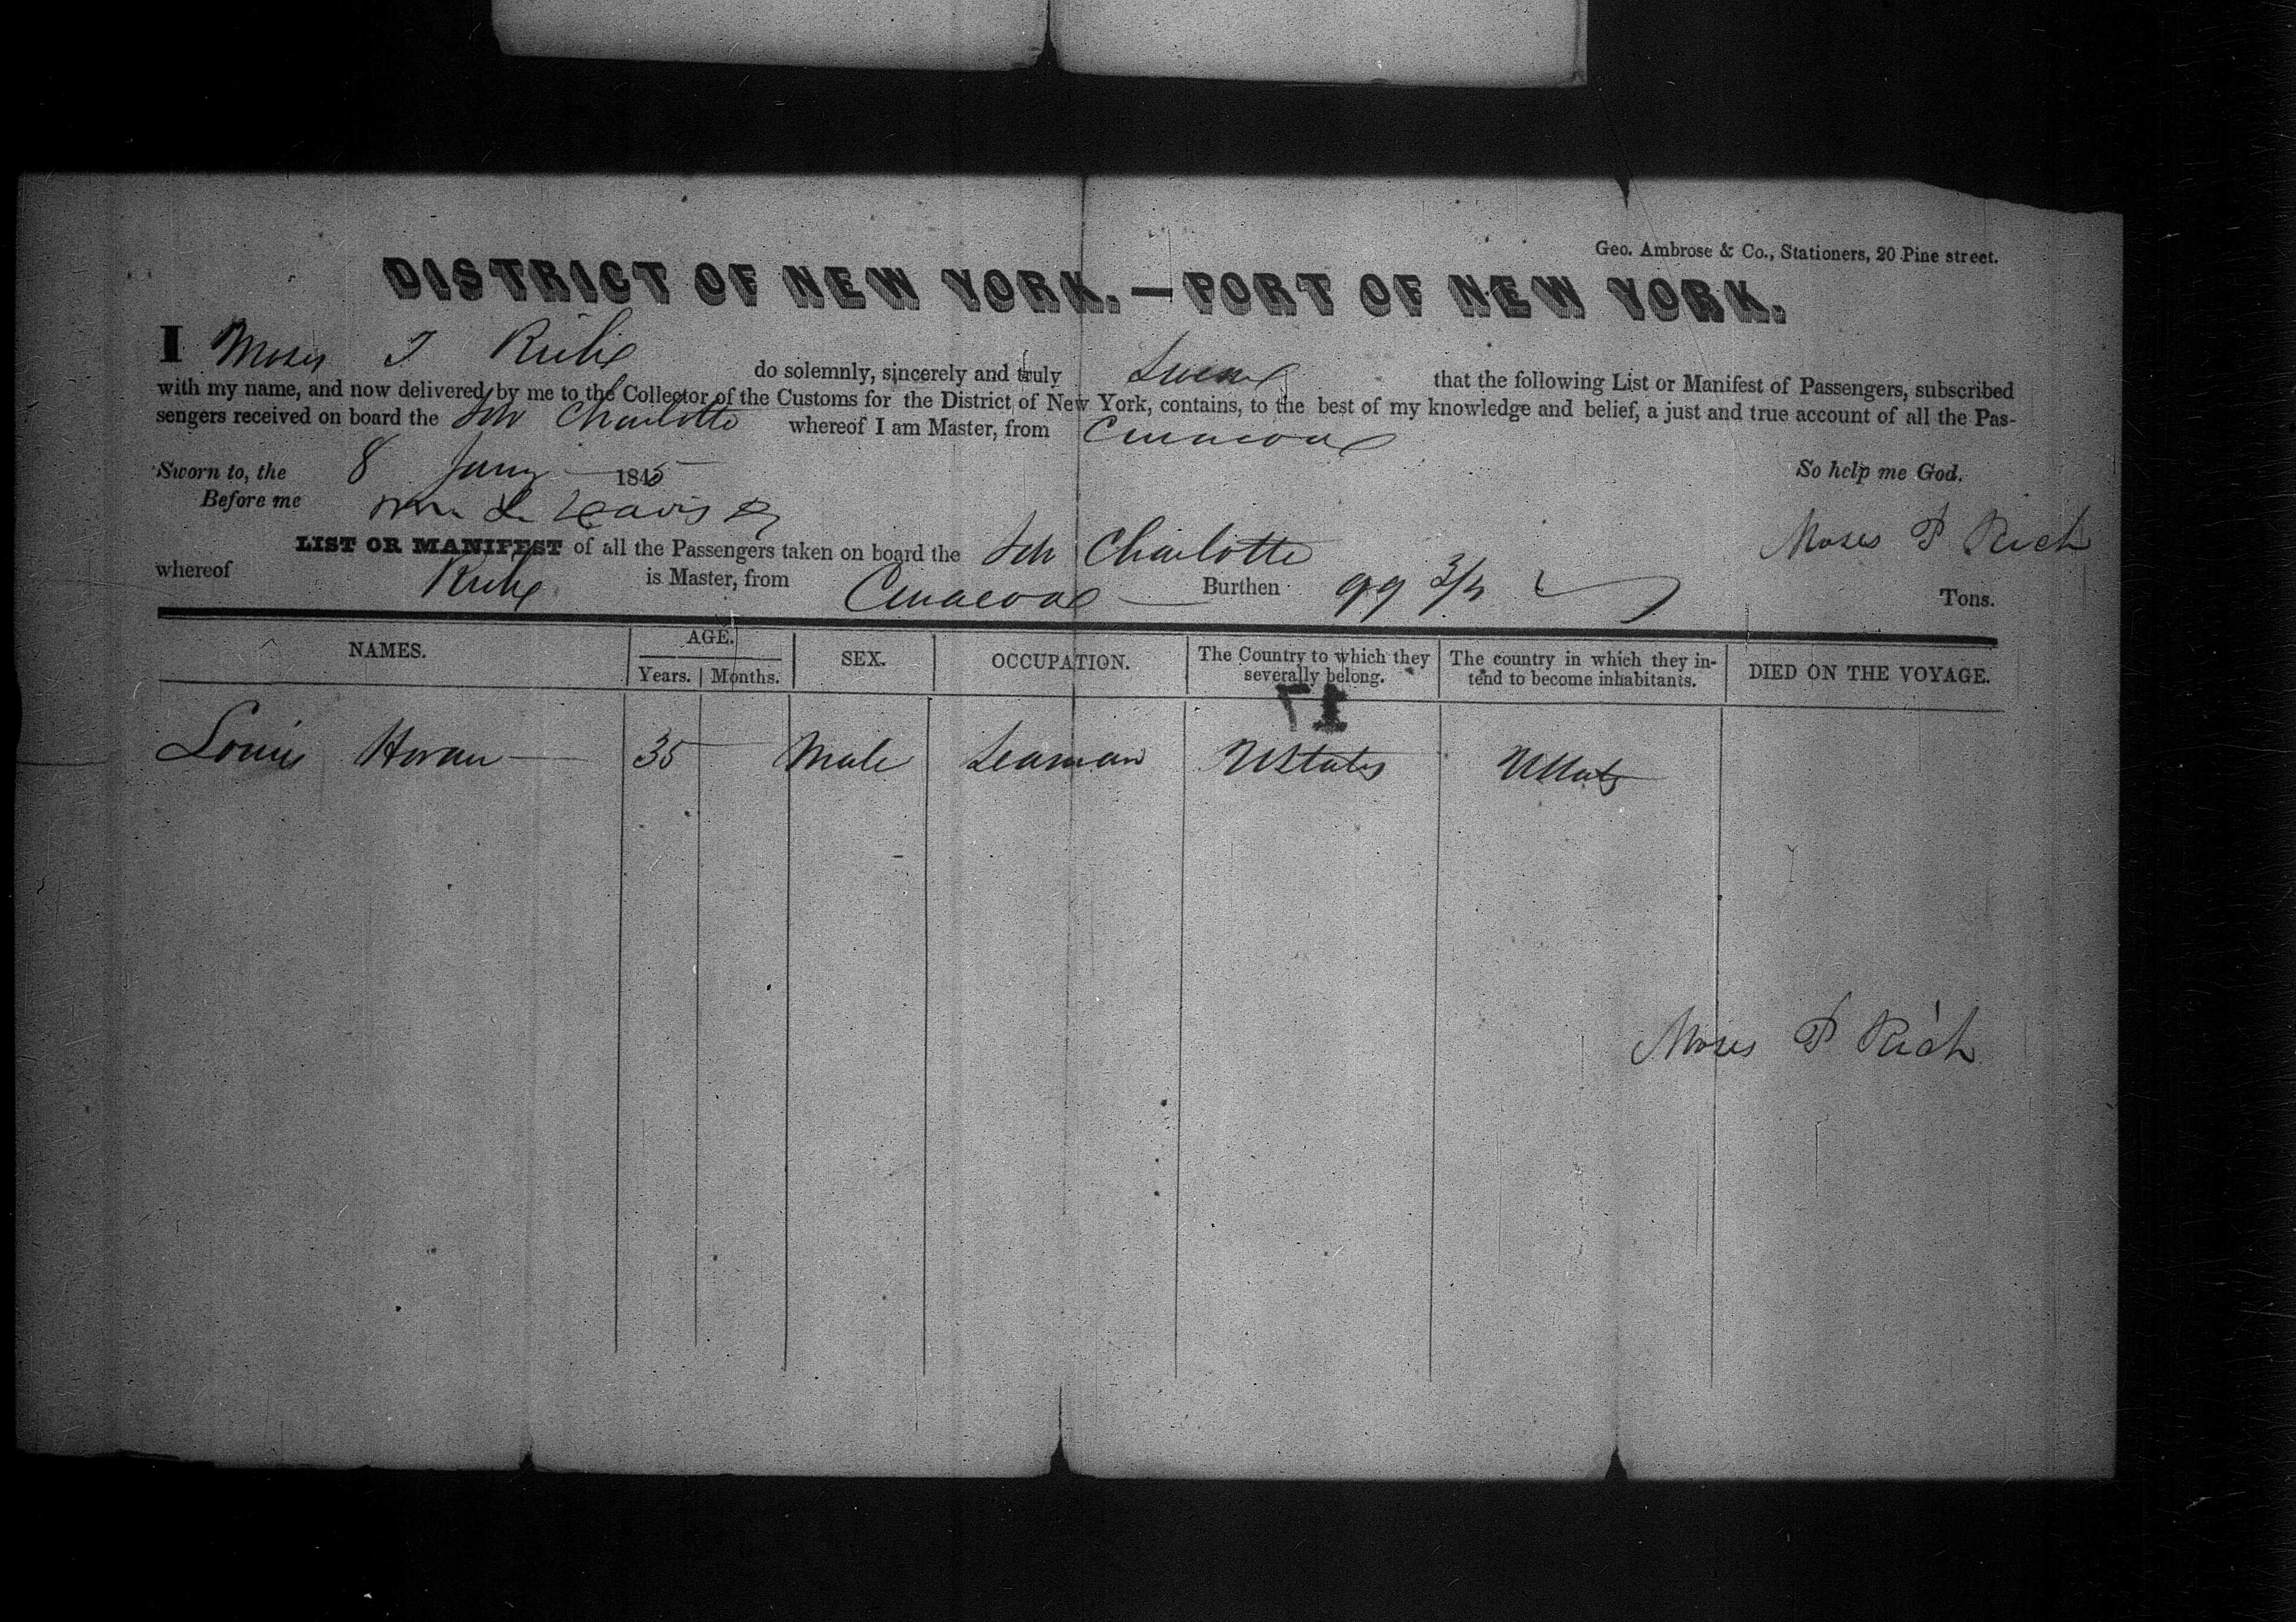 Geo. Ambrose & Co., Stationers, 20 Pine street.
DISTRICT OF NEW YORK.—PORT OF NEW YORK.
I Moses Rich do solemnly, sincerely and truly Swear that the following List or Manifest of Passengers, subscribed
with my name, and now delivered by me to the Collector of the Customs for the District of New York, contains, to the best of my knowledge and belief, a just and true account of all the Pas-
sengers received on board the Sch Charlotte whereof I am Master, from Curacoa
So help me God.
Sworn to, the 8 Jany 1845
Before me
Moses P Rich
LIST OR MANIFEST of all the Passengers taken on board the Sch Charlotte
whereof Rich is Master, from Curacoa Burthen 99 Tons.
NAMES. AGE. SEX. OCCUPATION. The Country to which they severally belong. The country in which they in- tend to become inhabitants. DIED ON THE VOYAGE.
Years. Months.
71
Louis 35 Male Seaman UStates UStates
Moses P Rich